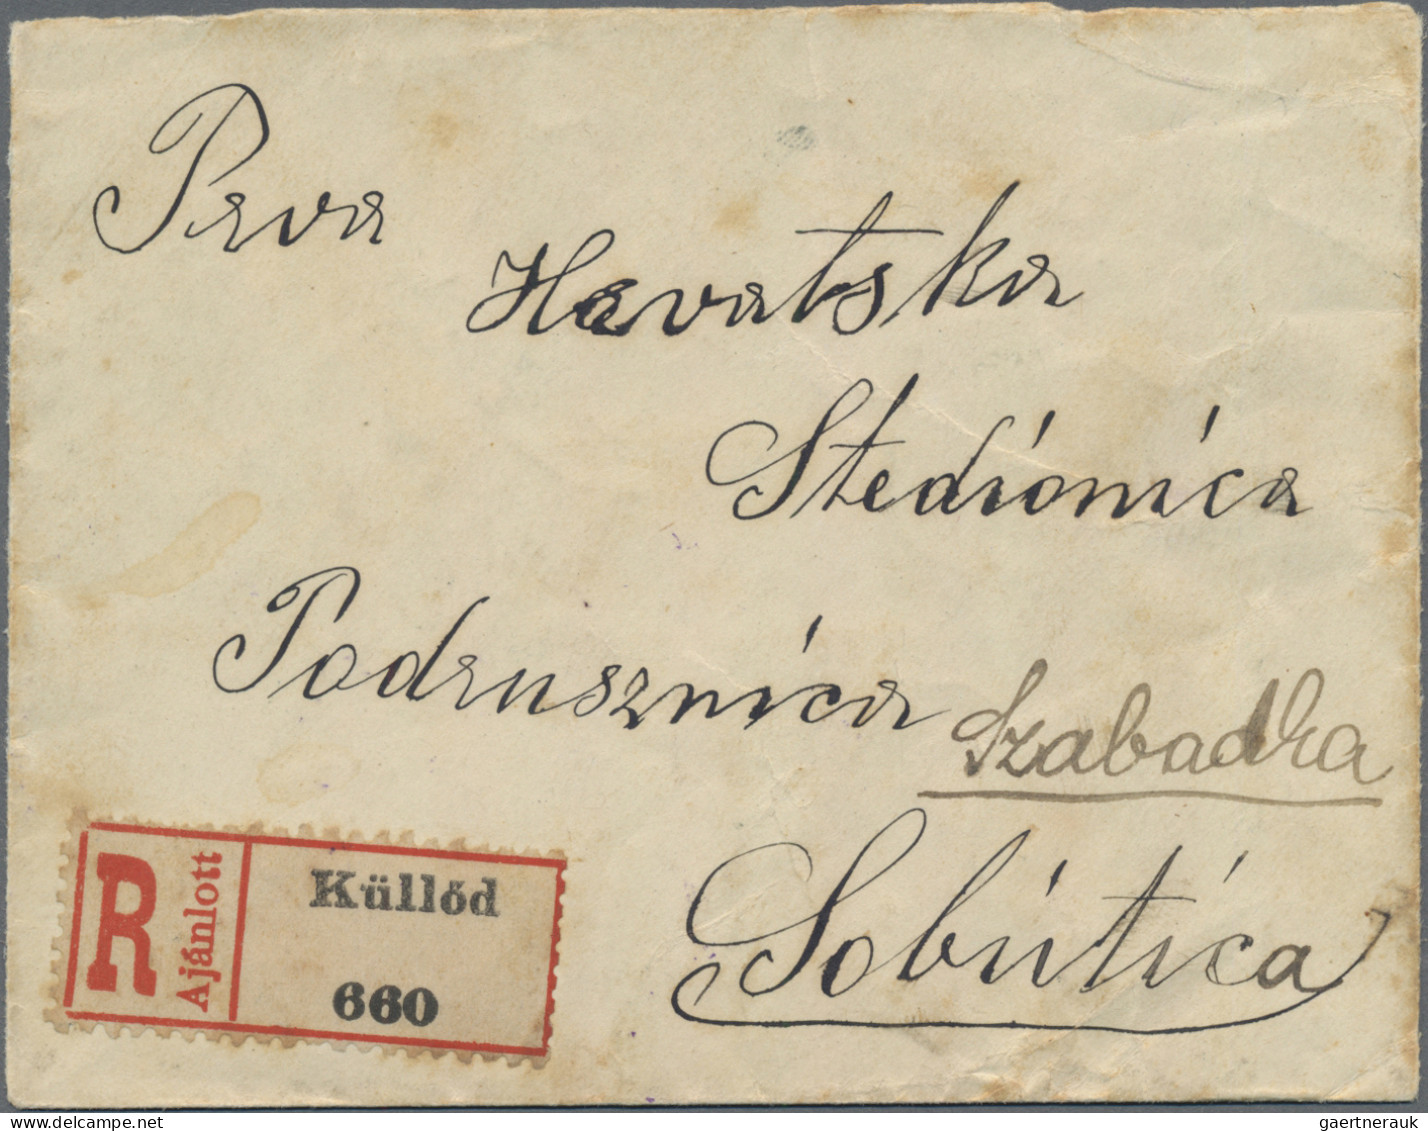 Prva
Hrvatska
Stedionica
Podrusznica
Szabadka
Sobutica
R
Ajánlott
Küllőd
660
gaertnerauk